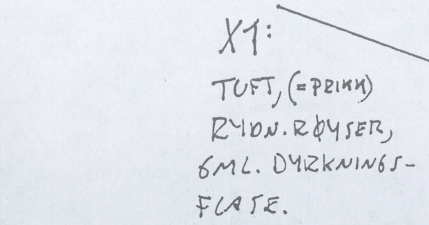 X1:
TUFT, (=PRIKK)
RYDN.RØYSER,
GML. DYRKNINGS-
FLATE.